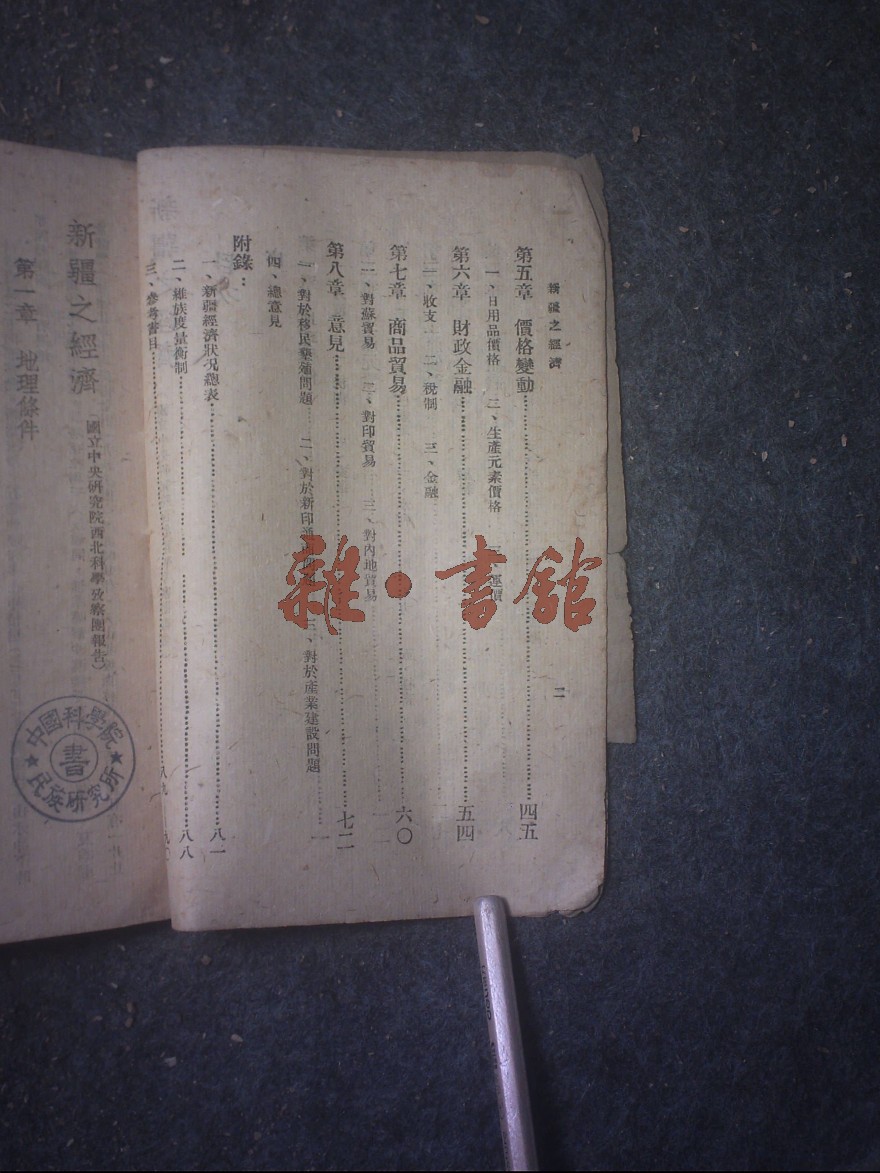 新疆之經濟
二
第五章　價格變動……四五
一、日用品價格　二、生產元素價格　三、運價
第六章　財政金融……五四
一、收支　二、稅制　三、金融
第七章　商品貿易……六〇
一、對蘇貿易　二、對印貿易　三、對內地貿易
第八章　意見……七二
一、對於移民墾殖問題　二、對於新印　三、對於產業建設問題
四、總意見
附錄：
一、新疆經濟狀況總表……八一
二、維族度量衡制……八八
三、參考書目……
新疆之經濟
（國立中央研究院西北科學攷察團報告）
第一章　地理條件
中國科學院
民族研究所
書
雜·書館